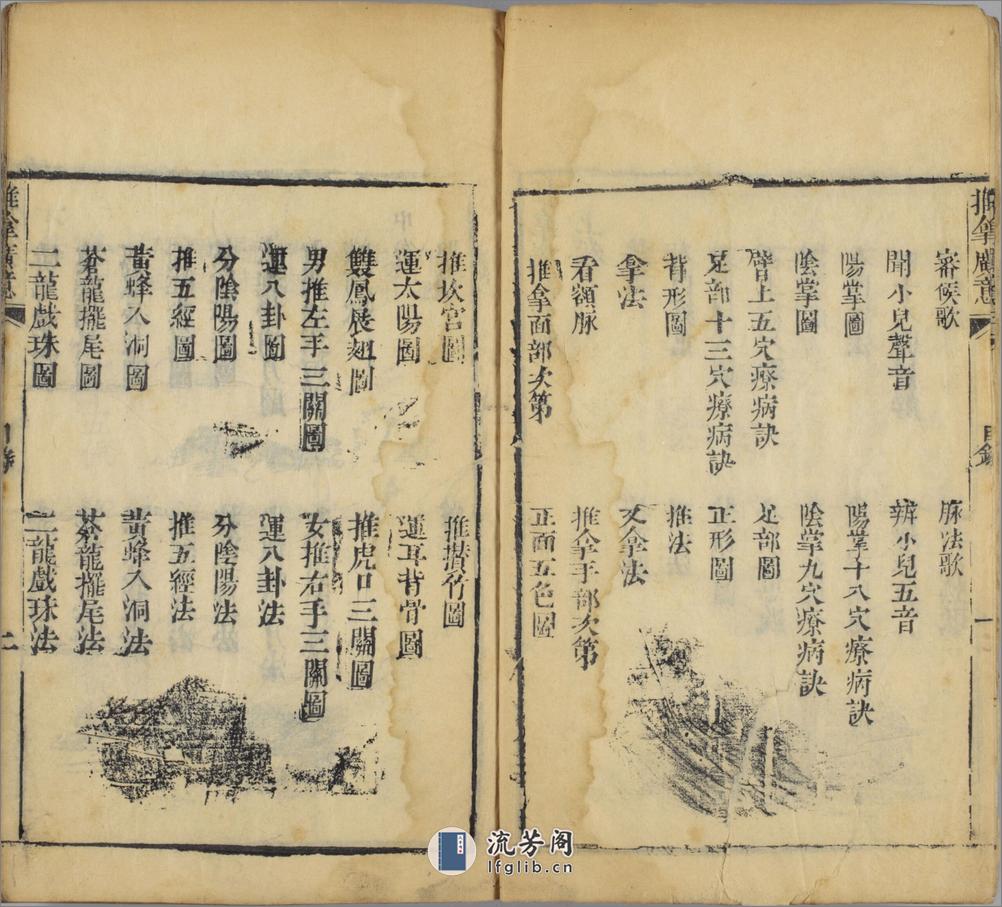 推拿廣意 目錄 一
審候歌 脉法歌
聞小兒聲音 辨小兒五音
陽掌圖 陽掌十八穴療病訣
陰掌圖 陰掌九穴療病訣
臂上五穴療病訣 足部圖
足部十三穴療病訣 正形圖
背形圖 推法
拿法 又拿法
看額脉 推拿手部次第
推拿面部次第 正面五色圖
推坎宮圖 推攢竹圖
運太陽圖 運耳背骨圖
雙鳳展翅圖 推虎口三關圖
男推左手三關圖 女推右手三關圖
運八卦圖 運八卦法
分陰陽圖 分陰陽法
推五經圖 推五經法
黃蜂入洞圖 黃蜂入洞法
蒼龍擺尾圖 蒼龍擺尾法
二龍戲珠圖 二龍戲珠法
推拿廣意 目錄 二
流芳阁
lfglib.cn